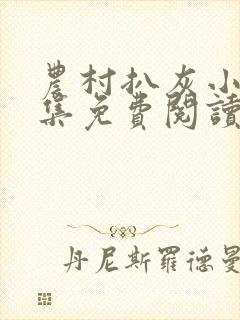 農村扒灰小
集免費閱讀
丹尼斯羅德曼